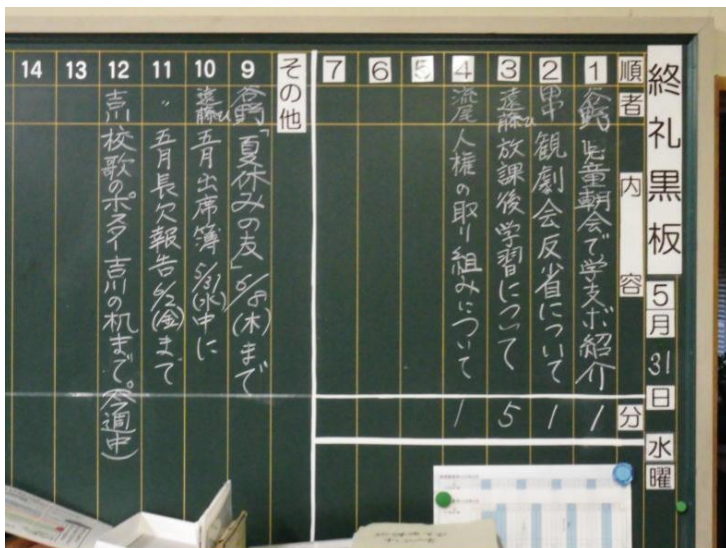 終礼黒板 5月31日水曜
順者 内容 分
1 谷野 児童朝会で学支ボ紹介 1
2 畢 観劇会反省について 1
3 遠藤ひ 放課後学習について 5
4 流尾 人権の取り組みについて 1
5
6
7
その他
9 谷野 「夏休みの友」6/8(木)まで
10 遠藤ひ 五月出席簿 5/31(水)中に
11 〃 五月長欠報告 6/2(金)まで
12 吉川 校歌のポスター吉川の机まで。(今週中)
13
14